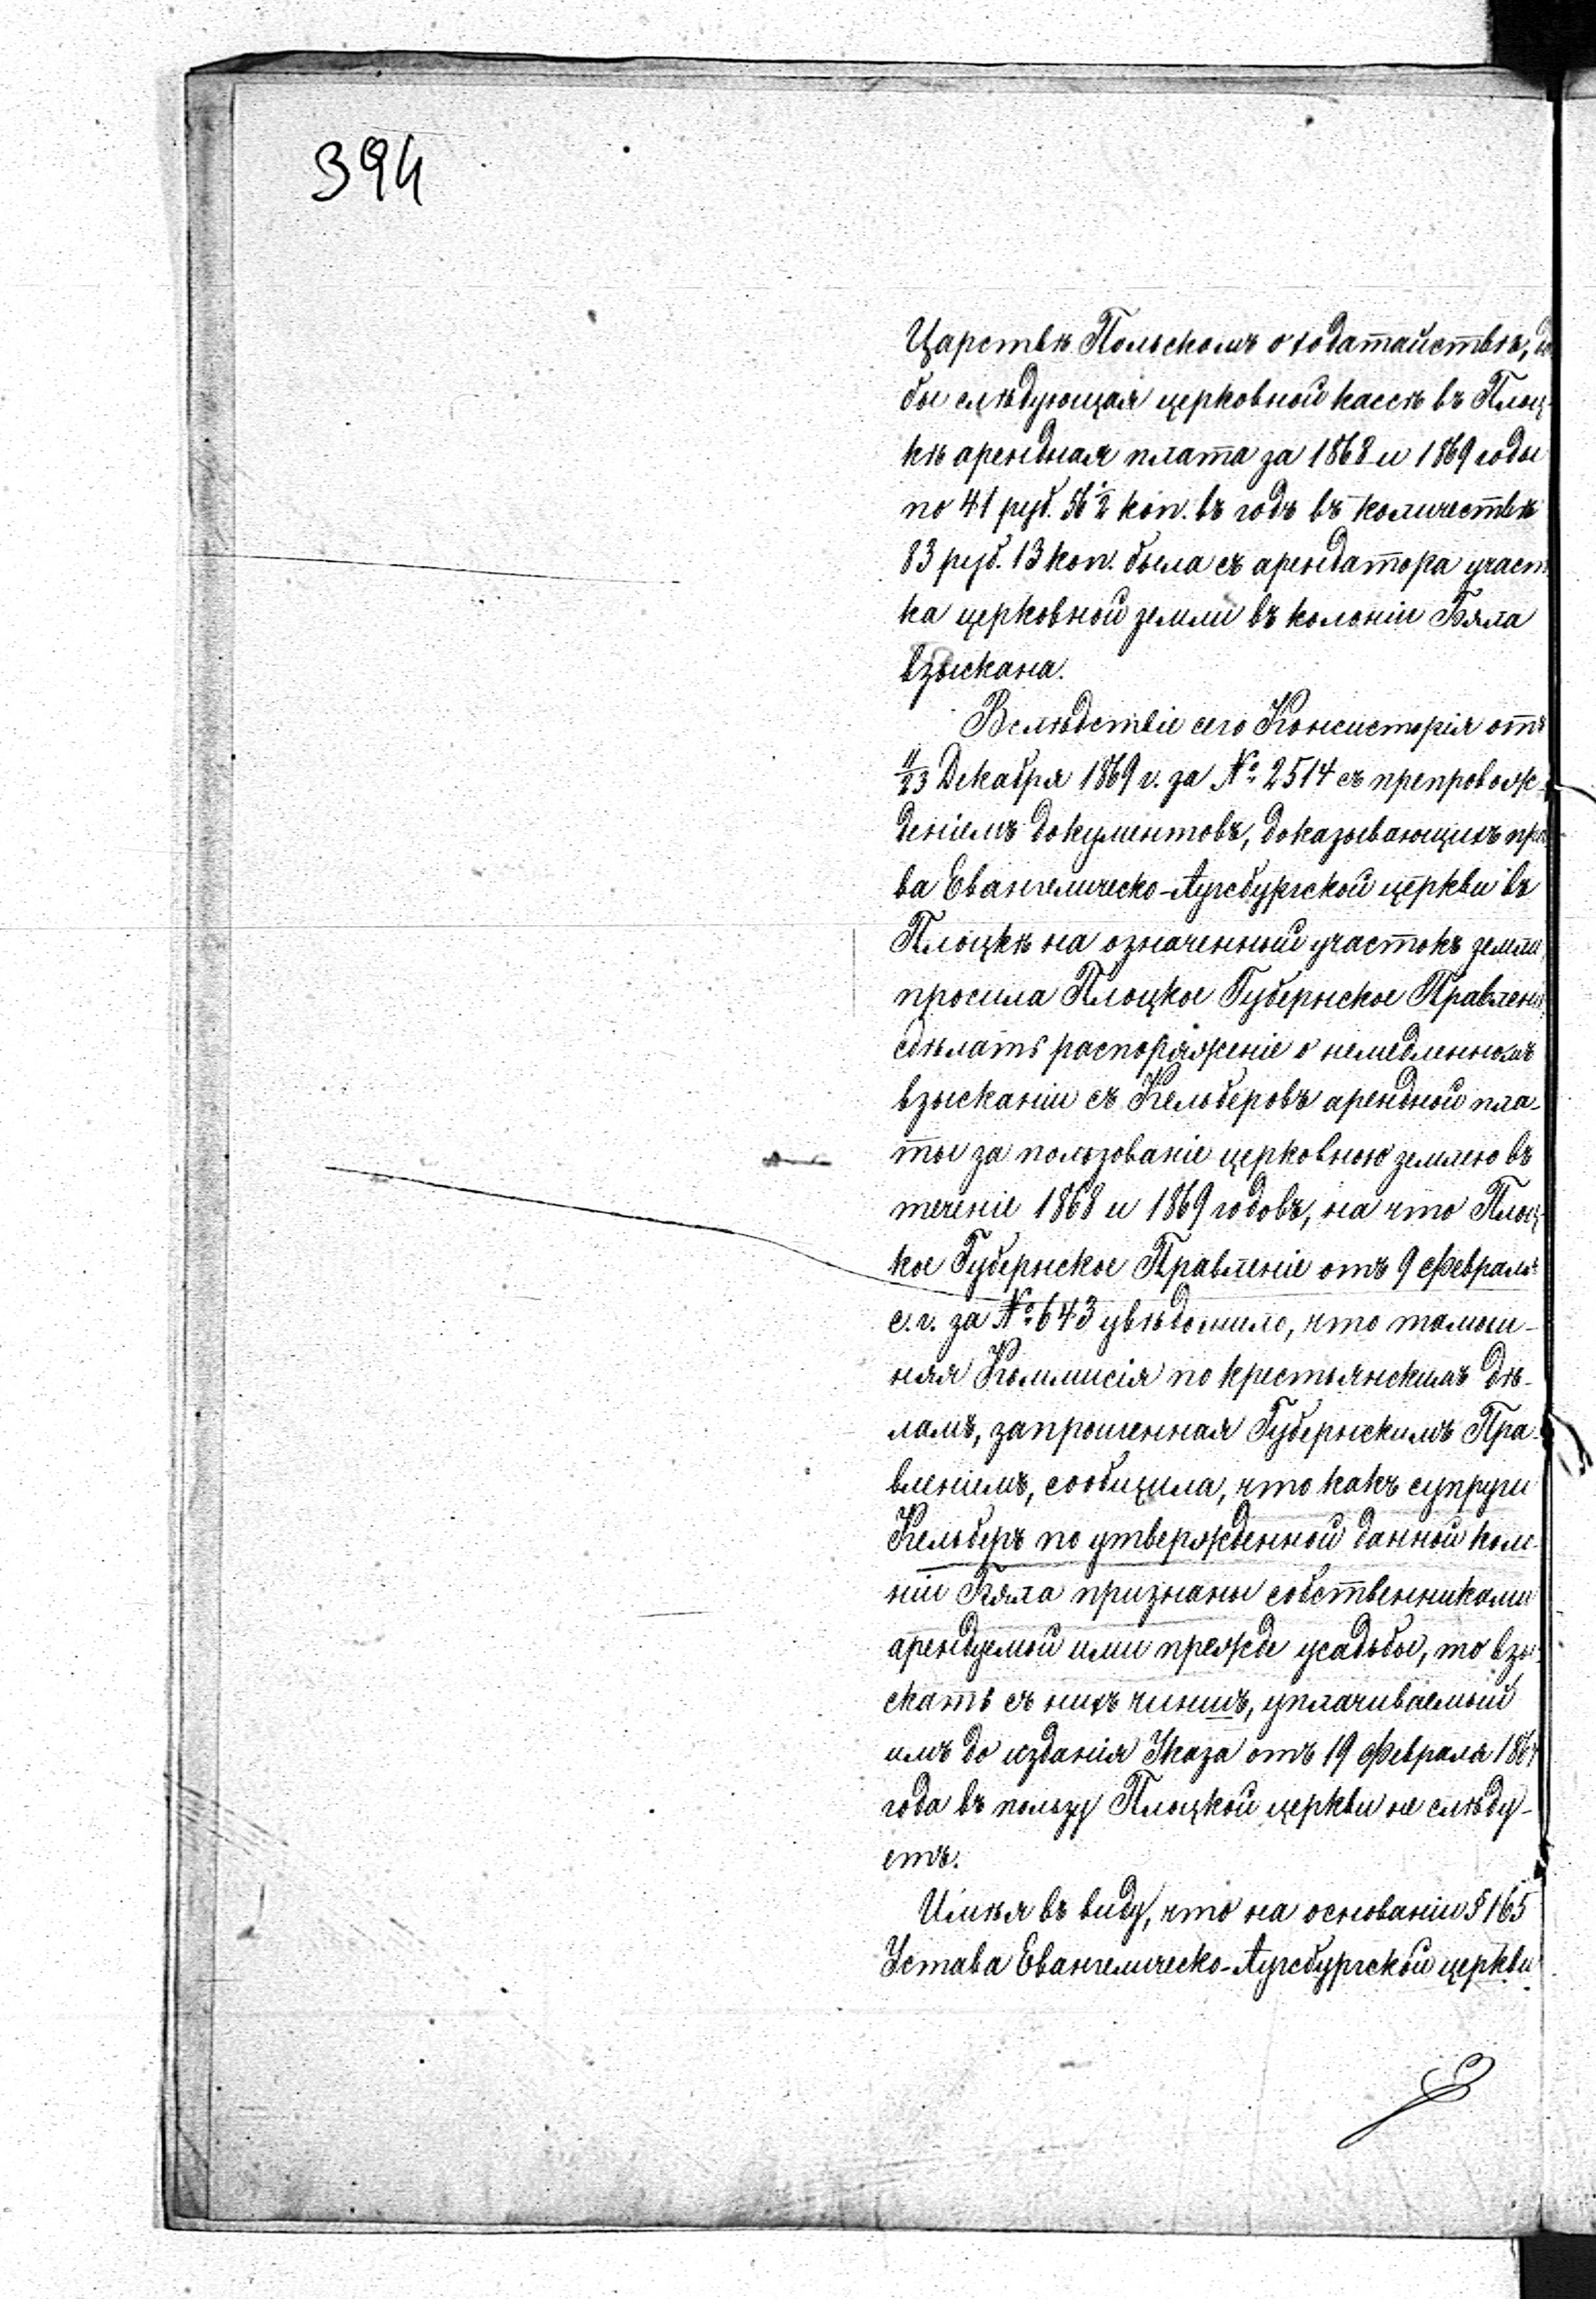 394
Царствѣ Польскомъ о ходатайствѣ, да
бы слѣдующая церковной кассѣ въ Плоц-
кѣ арендная плата за 1868 и 1869 годы
по 41 руб. 56 1/2 коп. въ годъ въ количествѣ
83 руб. 13 коп. была съ арендатора участ
ка церковной земли въ колоніи Бяла
взыскана.
Вслѣдствіе сего Консисторія отъ
11/23 Декабря 1869 г. за № 2514 съ препровож-
деніемъ документовъ, доказывающихъ пра
ва Евангелическо-Аугсбургской церкви въ
Плоцкѣ на означенный участокъ земли,
просила Плоцкое Губернское Правленіе
сдѣлать распоряженіе о немедленномъ
взысканіи съ Кельберовъ арендной пла-
ты за пользованіе церковною землею въ
теченіе 1868 и 1869 годовъ, на что Плоц-
кое Губернское Правленіе отъ 9 Февраля
с. г. за № 643 увѣдомило, что тамош-
няя Коммисія по крестьянскимъ дѣ-
ламъ, запрошенная Губернскимъ Пра-
вленіемъ, сообщила, что какъ супруги
Кельберъ по утвержденной данной коло
ніи Бяла признаны собственниками
арендуемой ими прежде усадьбы, то взы-
скать съ нихъ чиншъ, уплачиваемый
имъ до изданія Указа отъ 19 Февраля 1864
года въ пользу Плоцкой церкви не слѣду-
етъ.
Имѣя въ виду, что на основаніи § 165
Устава Евангелическо-Аугсбургской церкви